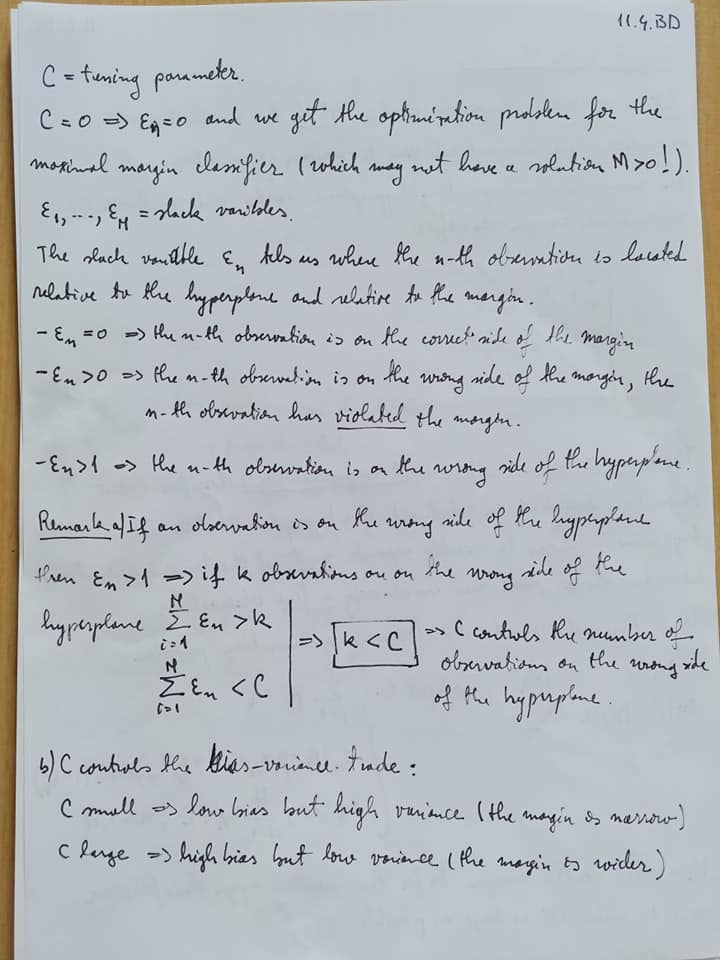 11.4.BD
C = tuning parameter.
C = 0 => εₙ = 0 and we get the optimization problem for the
maximal margin classifier (which may not have a solution M>0!).
ε₁, ..., ε_N = slack varibles.
The slack variable εₙ tells us where the n-th observation is located
relative to the hyperplane and relative to the margin.
- εₙ = 0 => the n-th observation is on the correct side of the margin
- εₙ > 0 => the n-th observation is on the wrong side of the margin, the
n-th observation has violated the margin.
- εₙ > 1 => the n-th observation is on the wrong side of the hyperplane.
Remark a) If an observation is on the wrong side of the hyperplane
then εₙ > 1 => if k observations are on the wrong side of the
hyperplane ∑_{i=1}^{N} εₙ > k
∑_{i=1}^{N} εₙ < C
=> k < C => C controls the number of
observations on the wrong side
of the hyperplane.
b) C controls the bias-variance trade:
C small => low bias but high variance (the margin is narrow)
C large => high bias but low variance (the margin is wider)